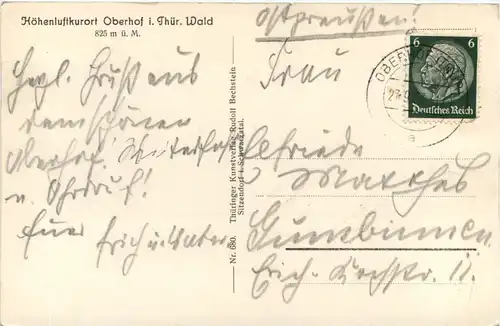 Höhenluftkurort Oberhof i. Thür. Wald
825 m ü. M.
Herzl. Grüße aus
dem schönen
Oberhof!
u. Ohrdruf!
Erich u. Vater
Nr. 680. Thüringer Kunstverlag Rudolf Bechstein
Sitzendorf i. Schwarzatal.
Ostpreußen!
Frau
Elfriede
Matthes
Gumbinnen
Erich-Koch-Str. 11.
6 6
Deutsches Reich
OBERHOF
a